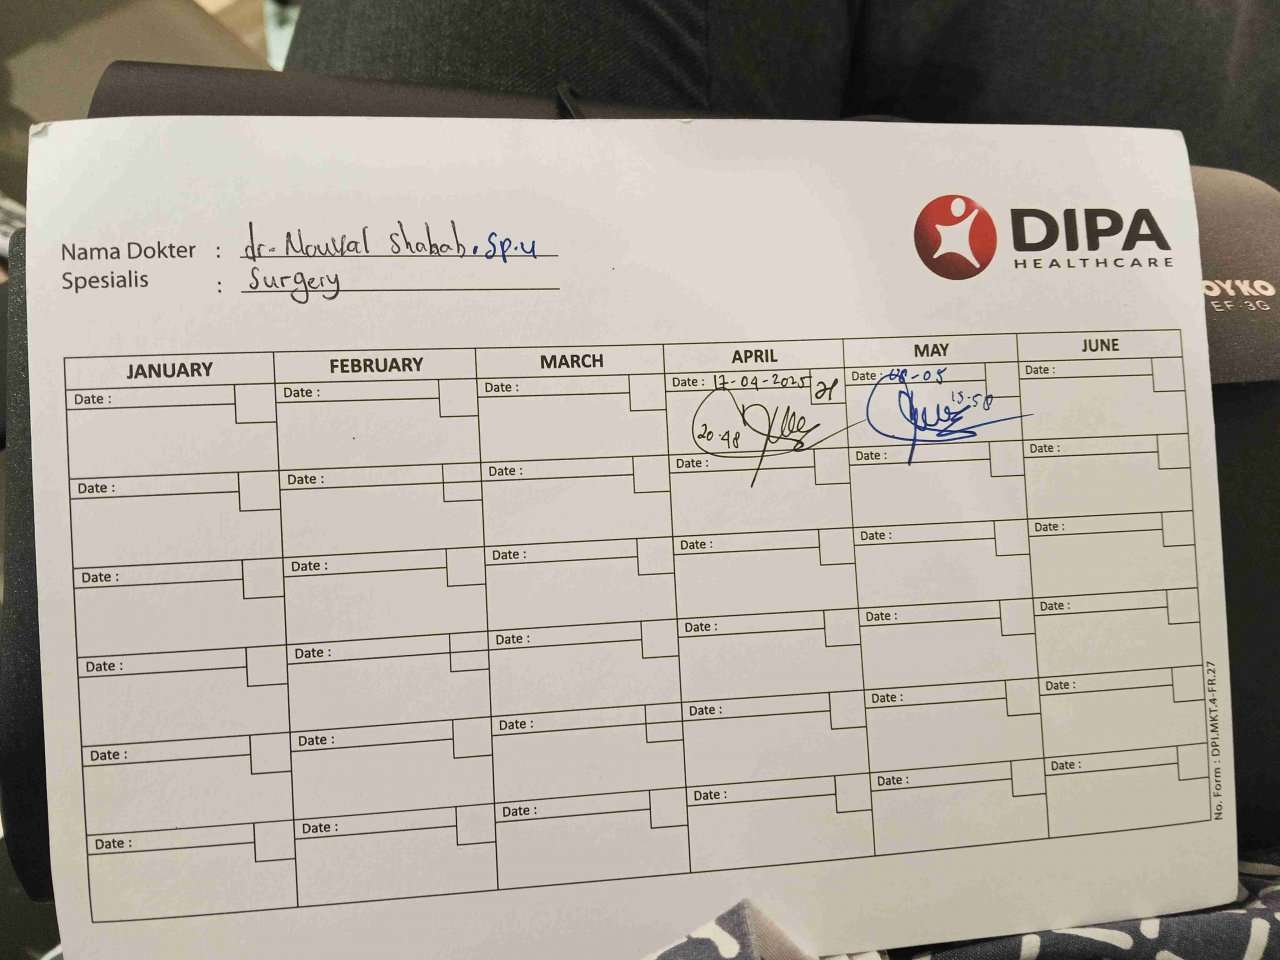 DIPA
HEALTHCARE
Nama Dokter : dr. Nouval Shahab, Sp.U
Spesialis : Surgery
OYKO
EF-3G
JANUARY FEBRUARY MARCH APRIL MAY JUNE
Date : Date : Date : Date : 17-04-2025 Date : 08-05 Date :
20.48 15.58
Date : Date : Date : Date : Date : Date :
Date : Date : Date : Date : Date : Date :
Date : Date : Date : Date : Date : Date :
Date : Date : Date : Date : Date : Date :
Date : Date : Date : Date : Date : Date :
No. Form : DPI.MKT.4-FR.27